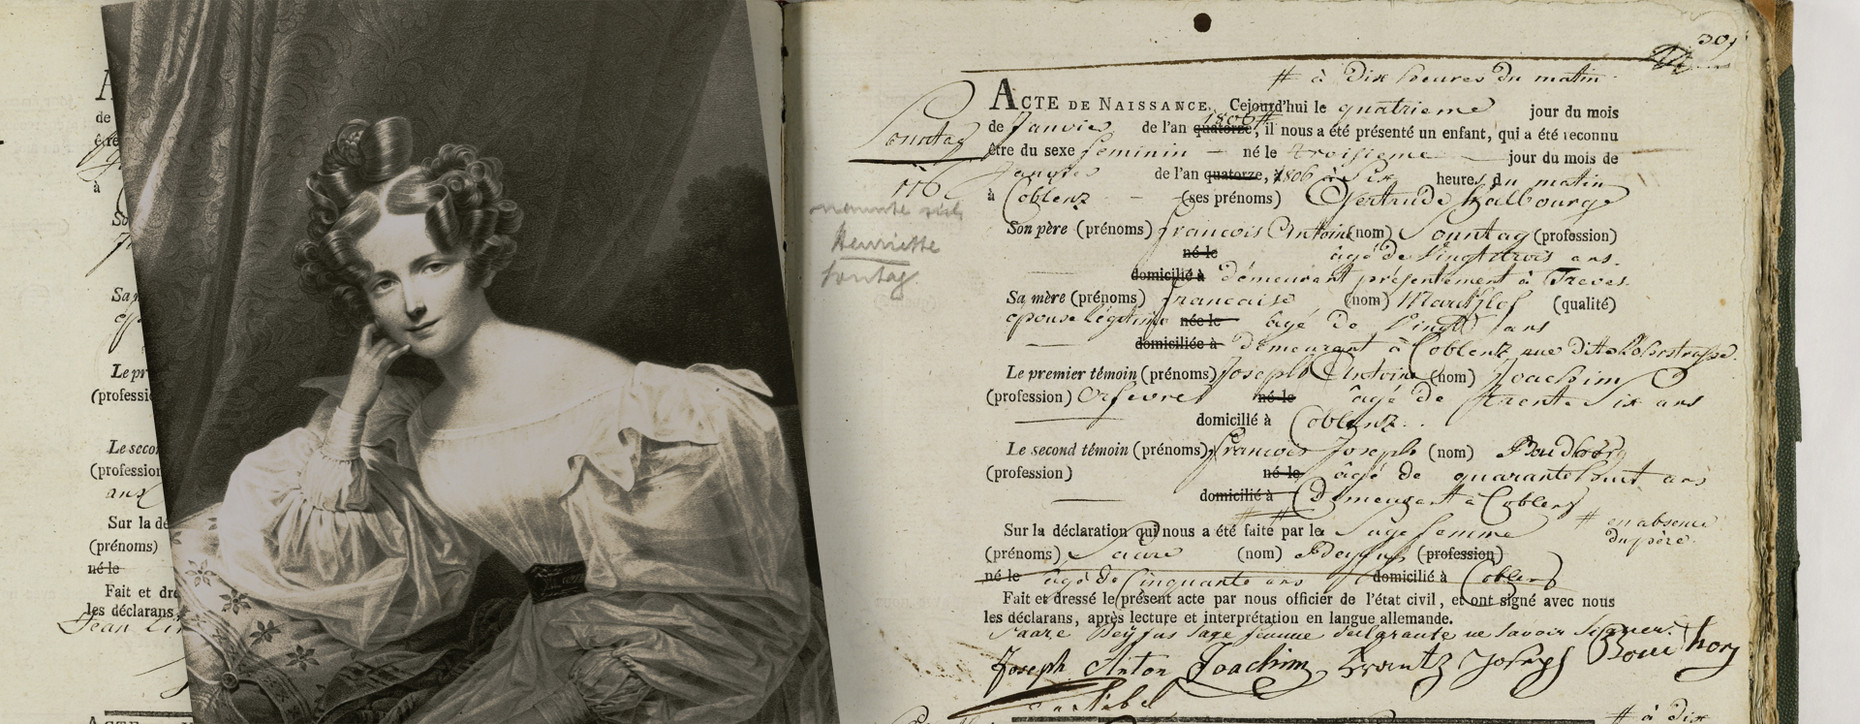 30
# à dix heures du matin
ACTE DE NAISSANCE. Cejourd'hui le quatrieme jour du mois
de Janvier de l'an quatorze, 1806 # il nous a été présenté un enfant, qui a été reconnu
être du sexe feminin né le troisieme jour du mois de
Janvier de l'an quatorze, 1806 à Six heures du matin
à Coblenz (ses prénoms) Gertrude Walbourge
Sonntag
Henriette
Sontag
Son père (prénoms) francois Antoine (nom) Sonntag (profession)
né le âgé de Vingt trois ans
domicilié à démeurant présentement à Treves.
Sa mère (prénoms) francaise (nom) (qualité)
epouse légitime née le âgé de Vingt ans
domiciliée à demeurant à Coblenz, rue dite
Le premier témoin (prénoms) Joseph Antoine (nom) Joachim
(profession) Orfevre né le âgé de trente Six ans
domicilié à Coblenz.
Le second témoin (prénoms) francois Joseph (nom)
(profession) né le âgé de quarante huit ans
domicilié à Demeurant à Coblenz
Sur la déclaration qui nous a été faite par le Sage femme # en absence
du père.
(prénoms) (nom) (profession)
né le âgé de Cinquante ans domicilié à Coblenz
Fait et dressé le présent acte par nous officier de l'état civil, et ont signé avec nous
les déclarans, après lecture et interprétation en langue allemande.
Sage femme ne Savoir Signer.
Joseph Anton Joachim Frantz Joseph
# à dix
A
de
à
Le pr
(professio
Le seco
(profession
Sur la dé
(prénoms)
né le
Fait et dre
les déclarans,
Jean
ACTE